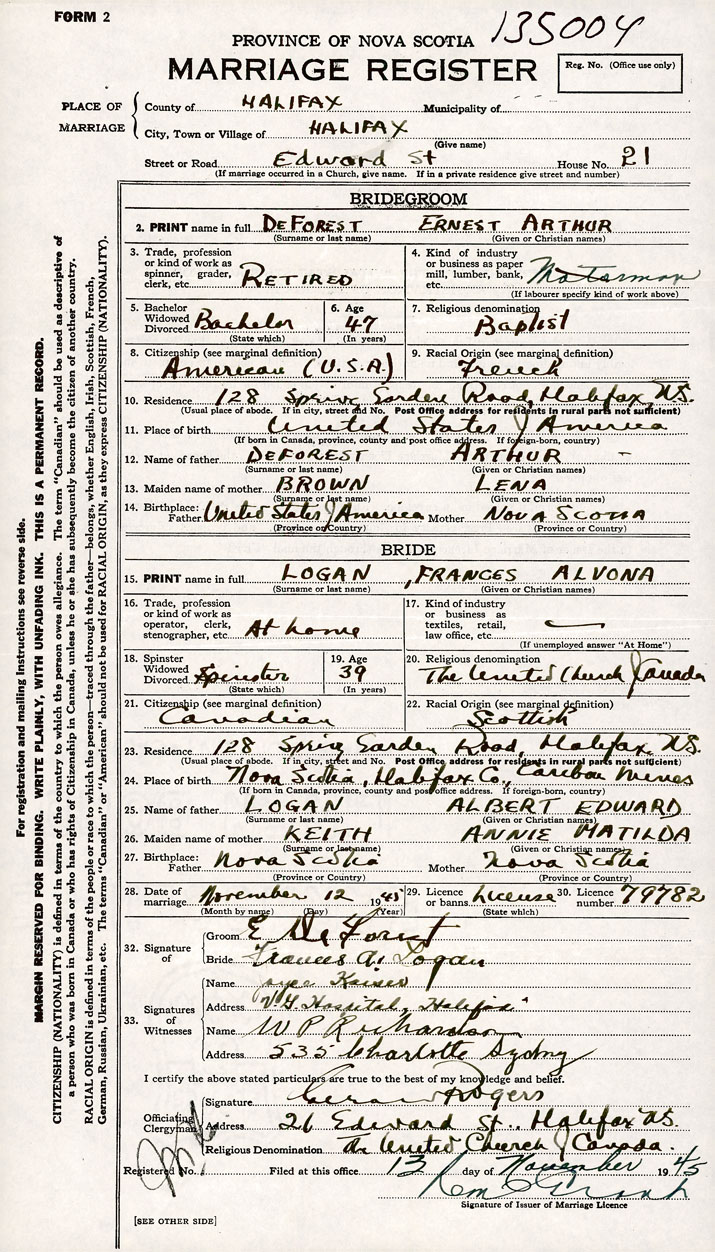 FORM 2
135004
PROVINCE OF NOVA SCOTIA
MARRIAGE REGISTER
Reg. No. (Office use only)
PLACE OF MARRIAGE
County of HALIFAX Municipality of
City, Town or Village of HALIFAX
(Give name)
Street or Road Edward St House No. 21
(If marriage occurred in a Church, give name. If in a private residence give street and number)
BRIDEGROOM
2. PRINT name in full DEFOREST ERNEST ARTHUR
(Surname or last name) (Given or Christian names)
3. Trade, profession or kind of work as spinner, grader, clerk, etc. RETIRED
4. Kind of industry or business as paper mill, lumber, bank, etc. Motorman
(If labourer specify kind of work above)
5. Bachelor Widowed Divorced Bachelor
(State which)
6. Age 47
(In years)
7. Religious denomination Baptist
8. Citizenship (see marginal definition) American (U.S.A.)
9. Racial Origin (see marginal definition) French
10. Residence 128 Spring Garden Road, Halifax, N.S.
(Usual place of abode. If in city, street and No. Post Office address for residents in rural parts not sufficient)
11. Place of birth United States of America
(If born in Canada, province, county and post office address. If foreign-born, country)
12. Name of father DEFOREST ARTHUR
(Surname or last name) (Given or Christian names)
13. Maiden name of mother BROWN LENA
(Surname or last name) (Given or Christian names)
14. Birthplace: Father United States of America Mother NOVA SCOTIA
(Province or Country) (Province or Country)
BRIDE
15. PRINT name in full LOGAN, FRANCES ALVONA
(Surname or last name) (Given or Christian names)
16. Trade, profession or kind of work as operator, clerk, stenographer, etc. At home
17. Kind of industry or business as textiles, retail, law office, etc. —
(If unemployed answer "At Home")
18. Spinster Widowed Divorced Spinster
(State which)
19. Age 39
(In years)
20. Religious denomination The United Church of Canada
21. Citizenship (see marginal definition) Canadian
22. Racial Origin (see marginal definition) Scottish
23. Residence 128 Spring Garden Road, Halifax N.S.
(Usual place of abode. If in city, street and No. Post Office address for residents in rural parts not sufficient)
24. Place of birth Nova Scotia, Halifax Co., Caribou Mines
(If born in Canada, province, county and post office address. If foreign-born, country)
25. Name of father LOGAN ALBERT EDWARD
(Surname or last name) (Given or Christian names)
26. Maiden name of mother KEITH ANNIE MATILDA
(Surname or last name) (Given or Christian names)
27. Birthplace: Father Nova Scotia Mother Nova Scotia
(Province or Country) (Province or Country)
28. Date of marriage November 12 1945
(Month by name) (Day) (Year)
29. Licence or banns License
(State which)
30. Licence number 79782
32. Signature of
Groom E DeForest
Bride Frances A. Logan
33. Signatures of Witnesses
Name Joyce Kaiser
Address V.G. Hospital, Halifax
Name W P Richardson
Address 535 Charlotte Sydney
I certify the above stated particulars are true to the best of my knowledge and belief.
Officiating Clergyman
Signature Rogers
Address 21 Edward St., Halifax N.S.
Religious Denomination The United Church of Canada.
Registered No. Filed at this office 13 day of November 1945
Signature of Issuer of Marriage Licence
[SEE OTHER SIDE]
For registration and mailing instructions see reverse side.
MARGIN RESERVED FOR BINDING. WRITE PLAINLY, WITH UNFADING INK. THIS IS A PERMANENT RECORD.
CITIZENSHIP (NATIONALITY) is defined in terms of the country to which the person owes allegiance. The term "Canadian" should be used as descriptive of
a person who was born in Canada or who has rights of Citizenship in Canada, unless he or she has subsequently become the citizen of another country.
RACIAL ORIGIN is defined in terms of the people or race to which the person—traced through the father—belongs, whether English, Irish, Scottish, French,
German, Russian, Ukrainian, etc. The terms "Canadian" or "American" should not be used for RACIAL ORIGIN, as they express CITIZENSHIP (NATIONALITY).